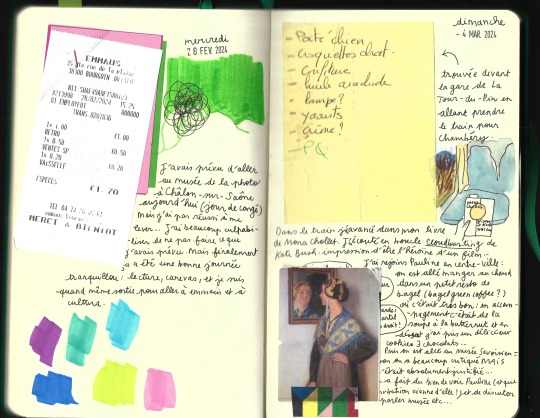 EMMAUS
rue de la plaine
38300 BOURGOIN
28/02/2024 15:25
01 EMPLOYE01 000000
TRANS.0207036
1x 1.00
RETRO €1.00
1x 0.50
VENTES SP €0.50
1x 0.20
VAISSELLE €0.20
ESPECES €1.70
TEL 04 74
MERCI A BIENTOT
mercredi
28 FEV. 2024
J'avais prévu d'aller
au musée de la photo
à Châlon-sur-Saône
aujourd'hui (jour de congé)
Mais j'ai pas réussi à me
lever. J'ai beaucoup culpabi-
liser de ne pas faire ce que
j'avais prévu. Mais finalement
a été une bonne journée
tranquillou : lecture, canevas, et je suis
quand même sortie pour aller à emmaüs et à
cultura.
- Paté chien
- croquettes chat.
- confiture
- huile
- lampe?
- yaourts
- crème?
- PQ
dimanche
- 4 MAR. 2024
trouvée devant
la gare de La
Tour-du-Pin en
allant prendre
le train pour
Chambéry.
Dans le train j'avance dans mon livre
de Mona Chollet. J'écoute en boucle cloudbusting de
Kate Bush: impression d'être l'héroïne d'un film..
J'ai rejoins Pauline en centre-ville:
on est allé manger au chaud
dans un petit resto de
bagel (bagel green coffee?)
où c'était très bon: en accom-
pagnement c'était de la
soupe à la butternut et en
dessert j'ai pris un délicieux
cookies 3 chocolats...
Puis on est allé au musée Savoisien
on a beaucoup critiqué MAIS
c'était absolument justifié...
a fait du bien de voir Pauline (et que
vienne d'elle!) et de discuter
parler musée etc...